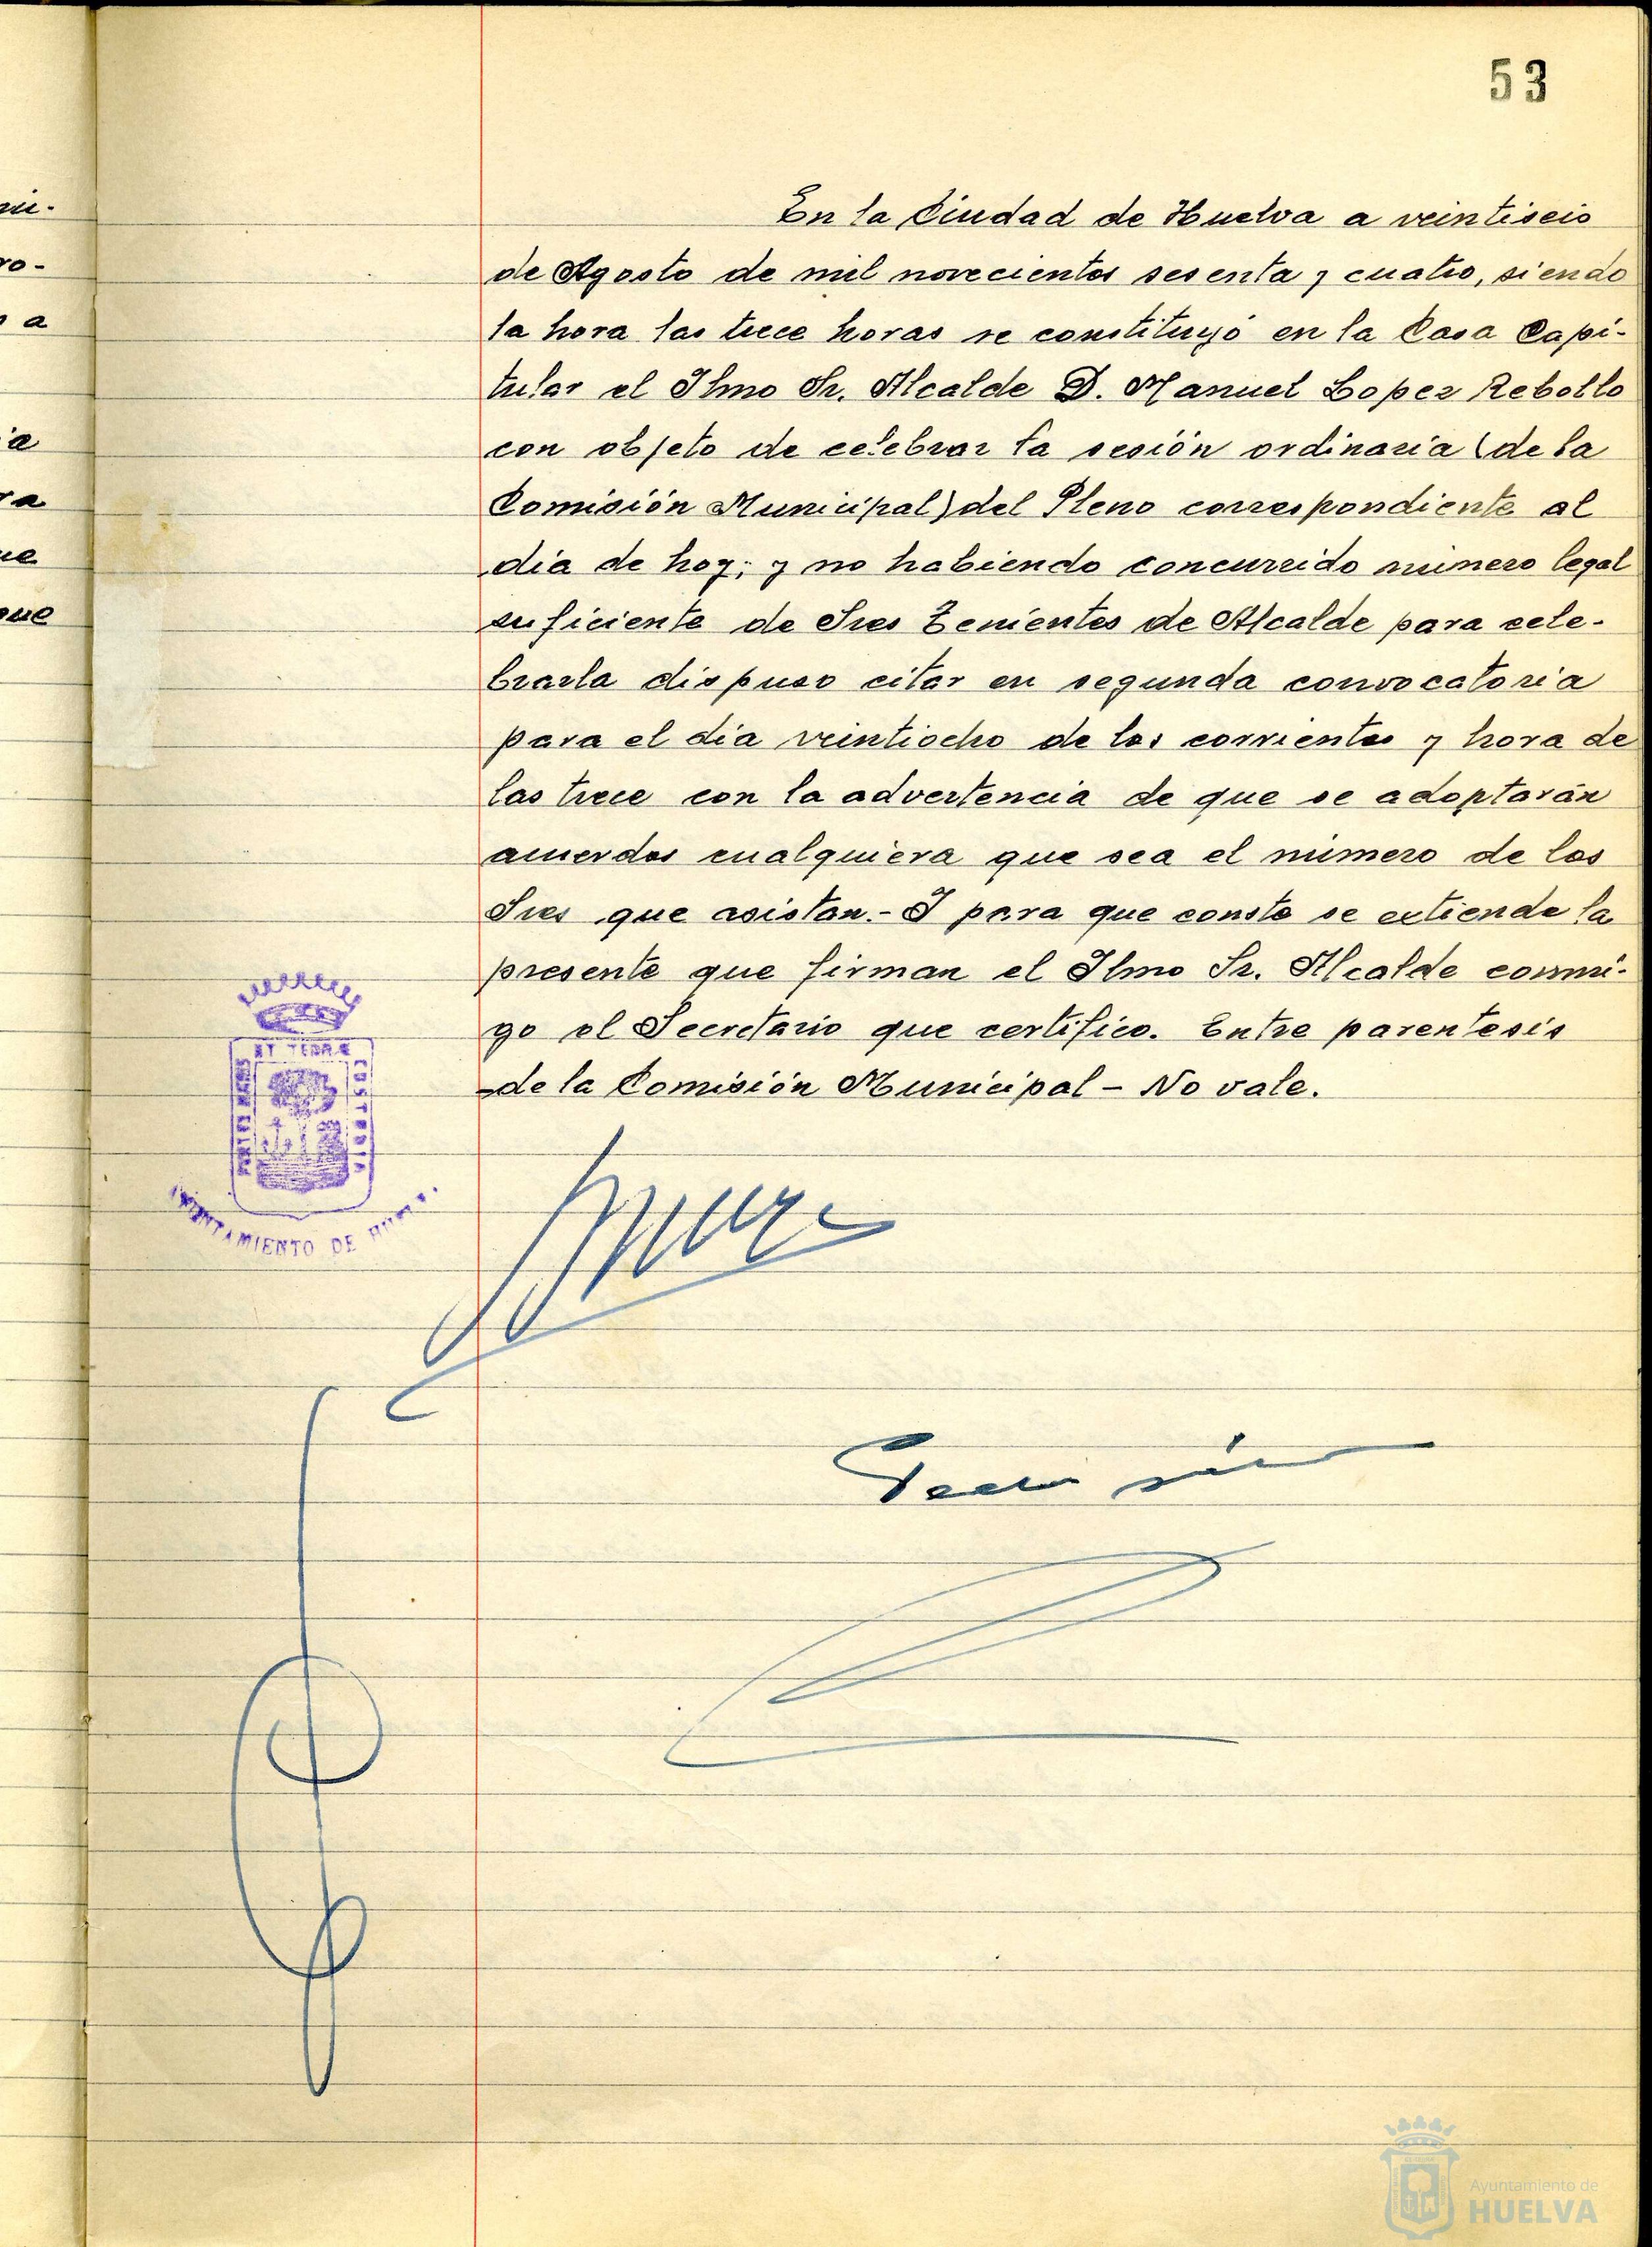 53
En la Ciudad de Huelva a veintiseis
de Agosto de mil novecientos sesenta y cuatro, siendo
la hora las trece horas se constituyó en la Casa Capi-
tular el Ilmo Sr. Alcalde D. Manuel Lopez Rebollo
con objeto de celebrar la sesión ordinaria (de la
Comisión Municipal) del Pleno correspondiente al
dia de hoy; y no habiendo concurrido número legal
suficiente de Sres Tenientes de Alcalde para cele-
brarla dispuso citar en segunda convocatoria
para el día veintiocho de los corrientes y hora de
las trece con la advertencia de que se adoptarán
acuerdos cualquiera que sea el número de los
Sres que asistan.- I para que conste se extiende la
presente que firman el Ilmo Sr. Alcalde conmi-
go el Secretario que certifico. Entre parentesis
-de la Comisión Municipal - No vale.
ni-
ro-
a
ia
ra
ue
que
ET TERRÆ
PORTUS MARIS
CUSTODIA
AYUNTAMIENTO DE HUELVA
Ayuntamiento de
HUELVA